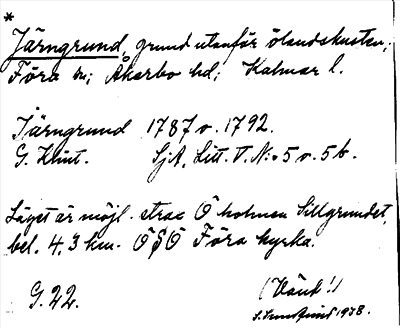 *
Järngrund, grund utanför ölandskusten;
Föra sn; Åkerbo hd; Kalmar l.
Järngrund 1787 o. 1792.
G. Klint. SjA, Litt. V. N:o 5 o. 5b.
Läget är möjl. strax Ö holmen Sillgrundet,
bel. 4,3 km. ÖSÖ Föra kyrka.
G. 22. (Vänd!)
1938.